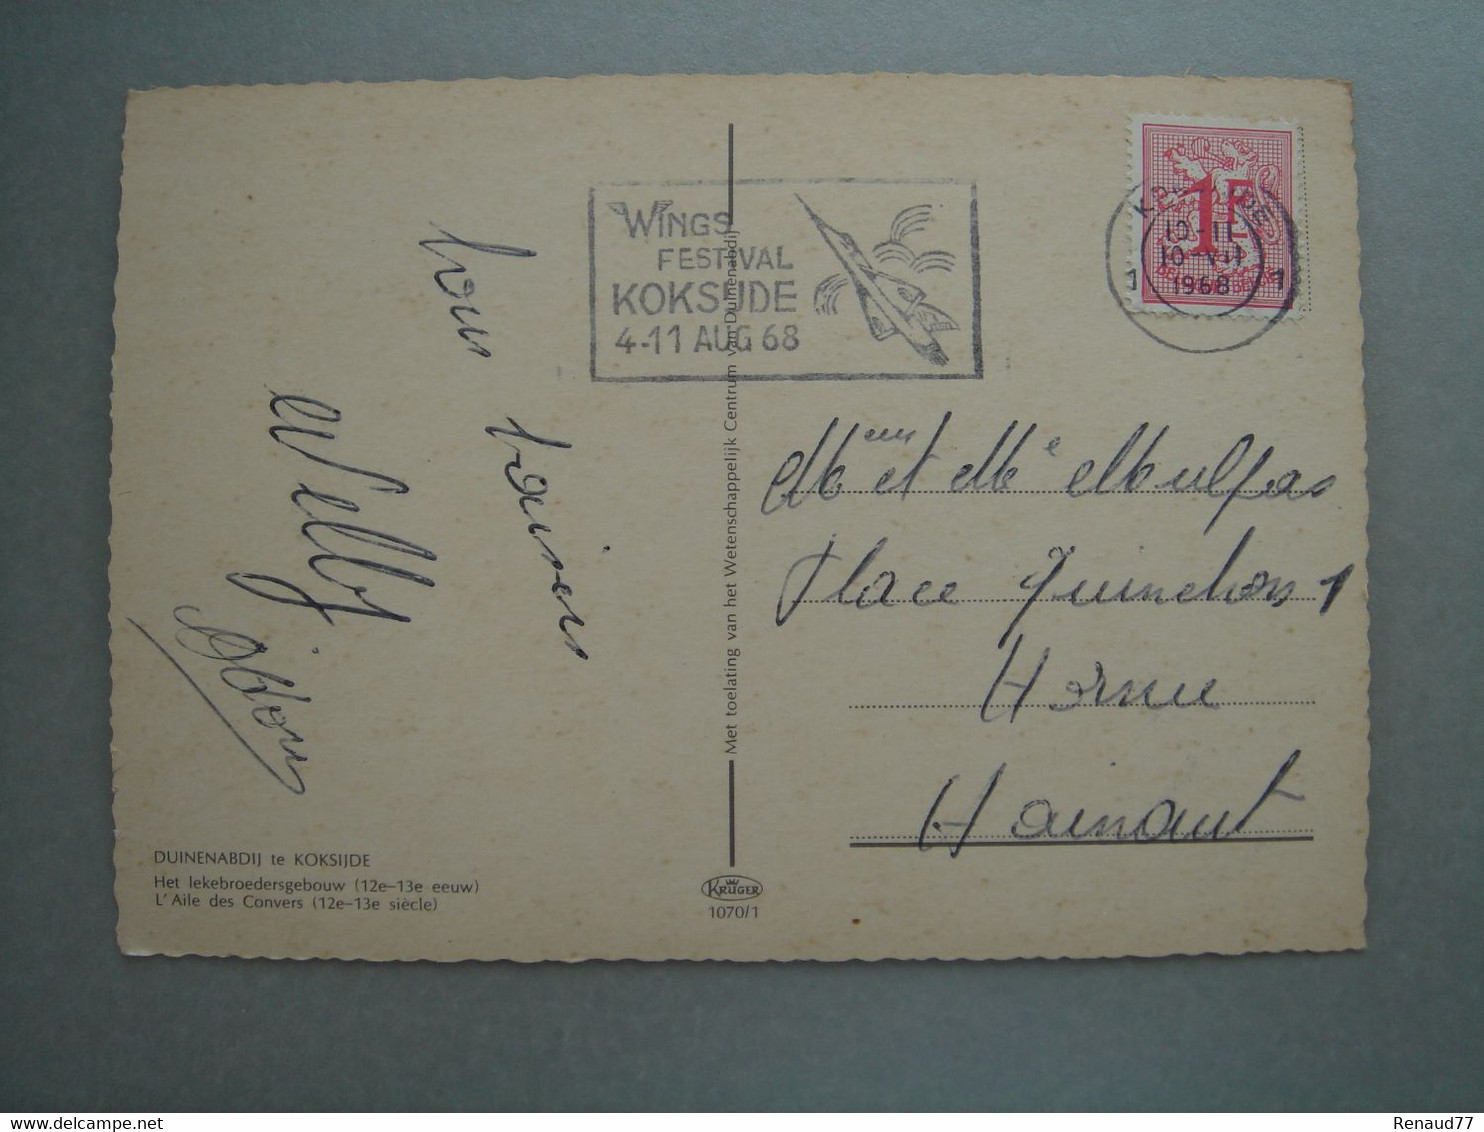 WINGS
FESTIVAL
KOKSIJDE
4-11 AUG 68
1F
10-11
10-VII
1968
1 1
bons baisers
Willy
Met toelating van het Wetenschappelijk Centrum van Duinenabdij
Mr et Me Mulpas
Place Quinchon 1
Hornu
Hainaut
DUINENABDIJ te KOKSIJDE
Het lekebroedersgebouw (12e–13e eeuw)
L' Aile des Convers (12e–13e siècle)
KRUGER
1070/1
delcampe.net
Renaud77